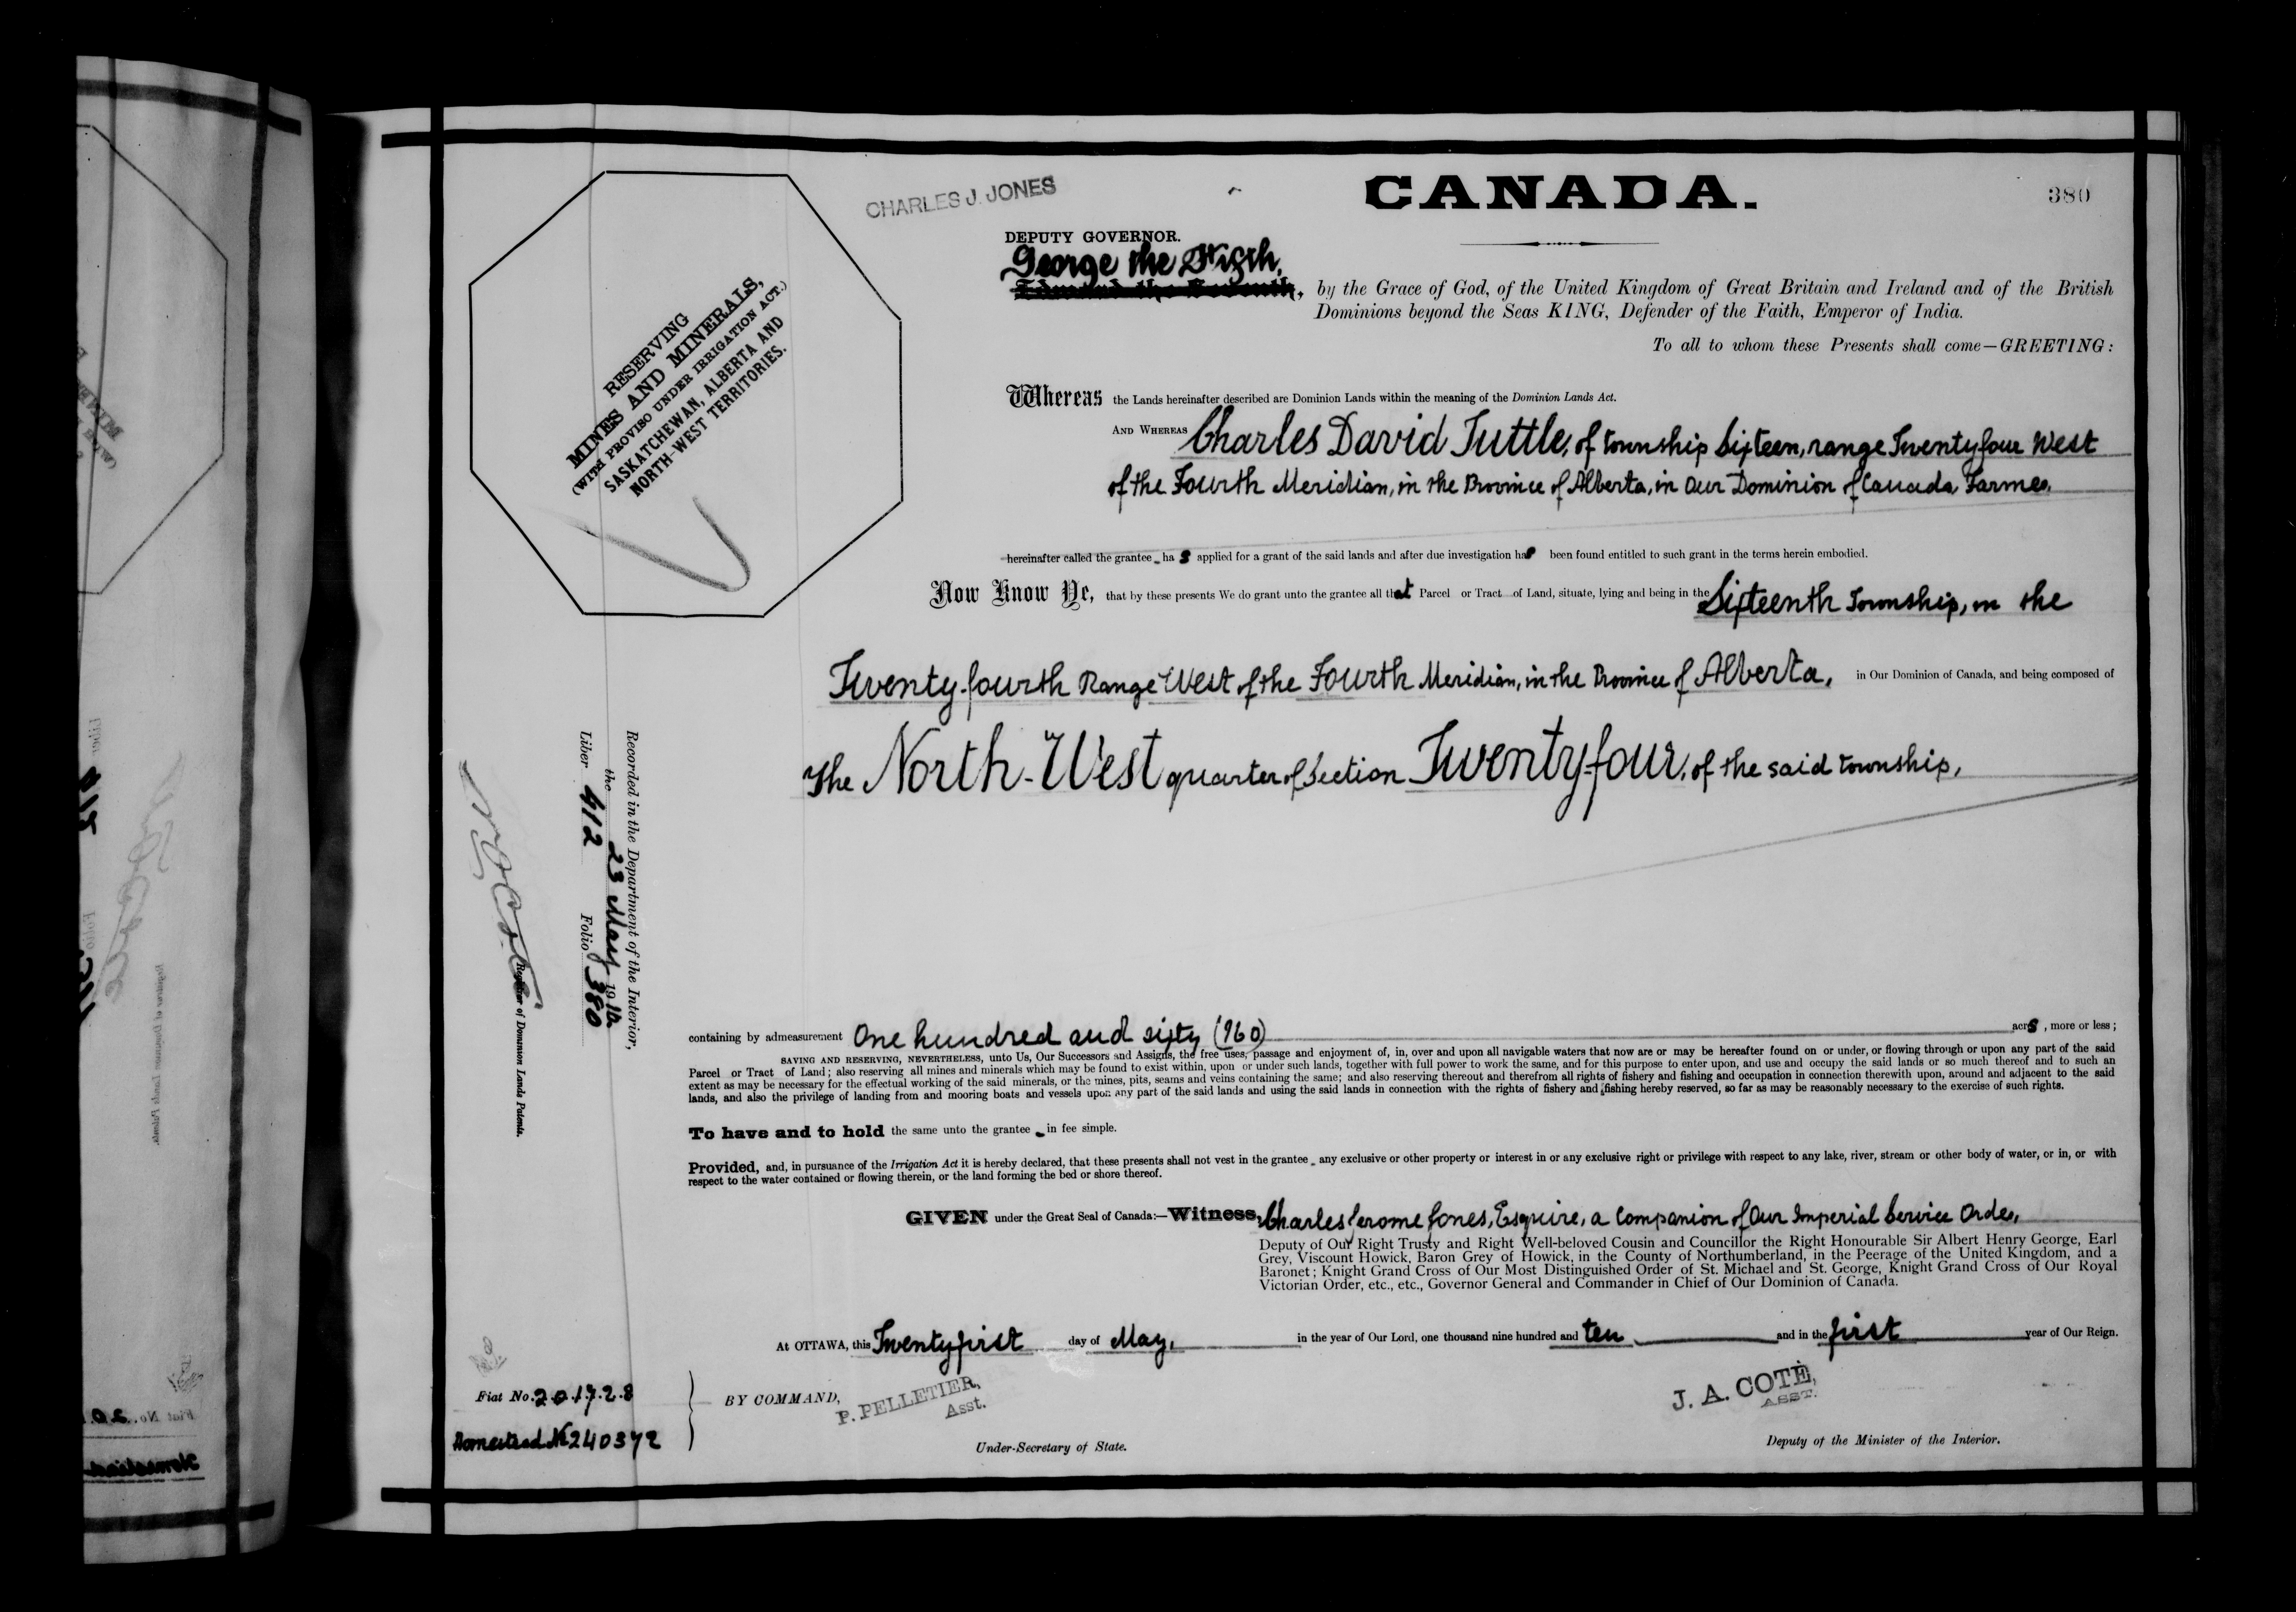 CHARLES J. JONES
CANADA.
380
DEPUTY GOVERNOR.
George the Fifth,
Edward the Seventh, by the Grace of God, of the United Kingdom of Great Britain and Ireland and of the British
Dominions beyond the Seas KING, Defender of the Faith, Emperor of India.
To all to whom these Presents shall come—GREETING:
RESERVING
MINES AND MINERALS,
(WITH PROVISO UNDER IRRIGATION ACT.)
SASKATCHEWAN, ALBERTA AND
NORTH-WEST TERRITORIES.
Whereas the Lands hereinafter described are Dominion Lands within the meaning of the Dominion Lands Act.
AND WHEREAS Charles David Tuttle, of township Sixteen, range Twenty four West
of the Fourth Meridian, in the Province of Alberta, in Our Dominion of Canada, Farmer,
hereinafter called the grantee has applied for a grant of the said lands and after due investigation has been found entitled to such grant in the terms herein embodied.
Now Know Ye, that by these presents We do grant unto the grantee all that Parcel or Tract of Land, situate, lying and being in the Sixteenth Township, in the
Twenty-fourth Range West of the Fourth Meridian, in the Province of Alberta, in Our Dominion of Canada, and being composed of
The North-West quarter of Section Twenty-four, of the said township,
Recorded in the Department of the Interior,
the 23 May 1910
Liber 412 Folio 380
Registrar of Dominion Lands Patents.
containing by admeasurement One hundred and sixty (160) acrs, more or less;
SAVING AND RESERVING, NEVERTHELESS, unto Us, Our Successors and Assigns, the free uses, passage and enjoyment of, in, over and upon all navigable waters that now are or may be hereafter found on or under, or flowing through or upon any part of the said
Parcel or Tract of Land; also reserving all mines and minerals which may be found to exist within, upon or under such lands, together with full power to work the same, and for this purpose to enter upon, and use and occupy the said lands or so much thereof and to such an
extent as may be necessary for the effectual working of the said minerals, or the mines, pits, seams and veins containing the same; and also reserving thereout and therefrom all rights of fishery and fishing and occupation in connection therewith upon, around and adjacent to the said
lands, and also the privilege of landing from and mooring boats and vessels upon any part of the said lands and using the said lands in connection with the rights of fishery and fishing hereby reserved, so far as may be reasonably necessary to the exercise of such rights.
To have and to hold the same unto the grantee in fee simple.
Provided, and, in pursuance of the Irrigation Act it is hereby declared, that these presents shall not vest in the grantee any exclusive or other property or interest in or any exclusive right or privilege with respect to any lake, river, stream or other body of water, or in, or with
respect to the water contained or flowing therein, or the land forming the bed or shore thereof.
GIVEN under the Great Seal of Canada:—Witness, Charles Jerome Jones, Esquire, a Companion of Our Imperial Service Order,
Deputy of Our Right Trusty and Right Well-beloved Cousin and Councillor the Right Honourable Sir Albert Henry George, Earl
Grey, Viscount Howick, Baron Grey of Howick, in the County of Northumberland, in the Peerage of the United Kingdom, and a
Baronet; Knight Grand Cross of Our Most Distinguished Order of St. Michael and St. George, Knight Grand Cross of Our Royal
Victorian Order, etc., etc., Governor General and Commander in Chief of Our Dominion of Canada.
At OTTAWA, this Twenty first day of May, in the year of Our Lord, one thousand nine hundred and ten and in the first year of Our Reign.
Fiat No. 201728
Homestead No 240372
BY COMMAND,
P. PELLETIER,
Asst.
Under-Secretary of State.
J. A. COTÉ,
ASST.
Deputy of the Minister of the Interior.